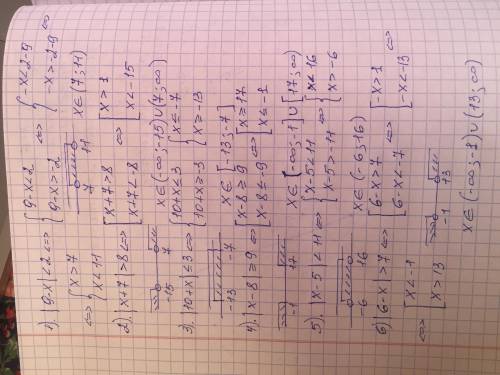 1). |9-x|<2 ⇔ { 9-x<2 ⇔ { -x<2-9
9-x>-2 -x>-2-9 ⇔
⇔ { x>7
x<11 7 11 x∈(7;11)
2). |x+7|>8 ⇔ [ x+7>8 ⇔ [ x>1
x+7<-8 x<-15
-15 7 x∈(-∞;-15)∪(7;∞)
3). |10+x|≤3 ⇔ { 10+x≤3 { x≤-7
10+x≥-3 x≥-13
-13 -7 x∈[-13;-7]
4). |x-8|≥9 ⇔ [ x-8≥9 [ x≥17
x-8≤-9 x≤-1
-1 17 x∈(-∞;-1]∪[17;∞)
5). |x-5|<11 ⇔ { x-5<11 ⇔ { x<16
x-5>-11 x>-6
-6 16 x∈(-6;16)
6) |6-x|>7 ⇔ [ 6-x>7 [ -x>1
6-x<-7 -x<13 ⇔
⇔ [ x<-1
x>13 -1 13
x∈(-∞;-1)∪(13;∞)